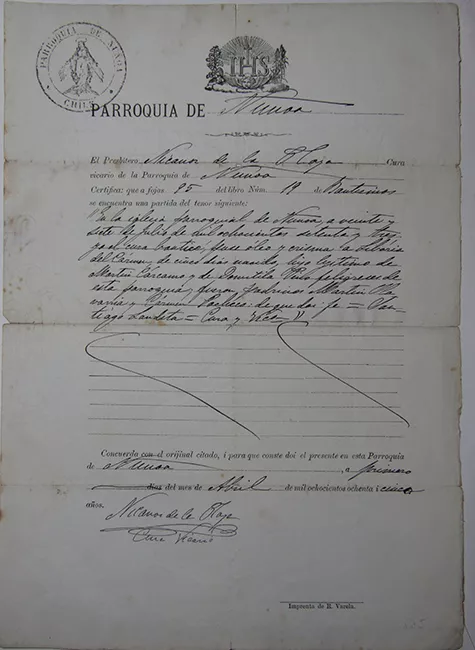 PARROQUIA DE ÑUÑOA
CHILE
IHS
PARROQUIA DE Nuñoa
El Presbitero Nicanor de la Plaza Cura
vicario de la Parroquia de Nuñoa
Certifica: que a fojas 25 del libro Núm. 19 de Bautismos
se encuentra una partida del tenor siguiente:
"En la iglesia parroquial de Nuñoa a veinte y
siete de julio de mil ochocientos setenta y tres
yo cura bautice, puse oleo y crisma a María
del Cármen, de cinco dias nacida, hija lejitima de
Martin Cárcamo y de Domitila feligreses de
esta parroquia y fueron padrinos Martin
y Cármen Pacheco, de que doi fe = San-
tiago Landeta = Cura y Vicº"
Concuerda con el orijinal citado, i para que conste doi el presente en esta Parroquia
de Nuñoa a primero
dias del mes de Abril de mil ochocientos ochenta i cinco
años.
Nicanor de la Plaza
Cura Vicario
Imprenta de R. Varela.